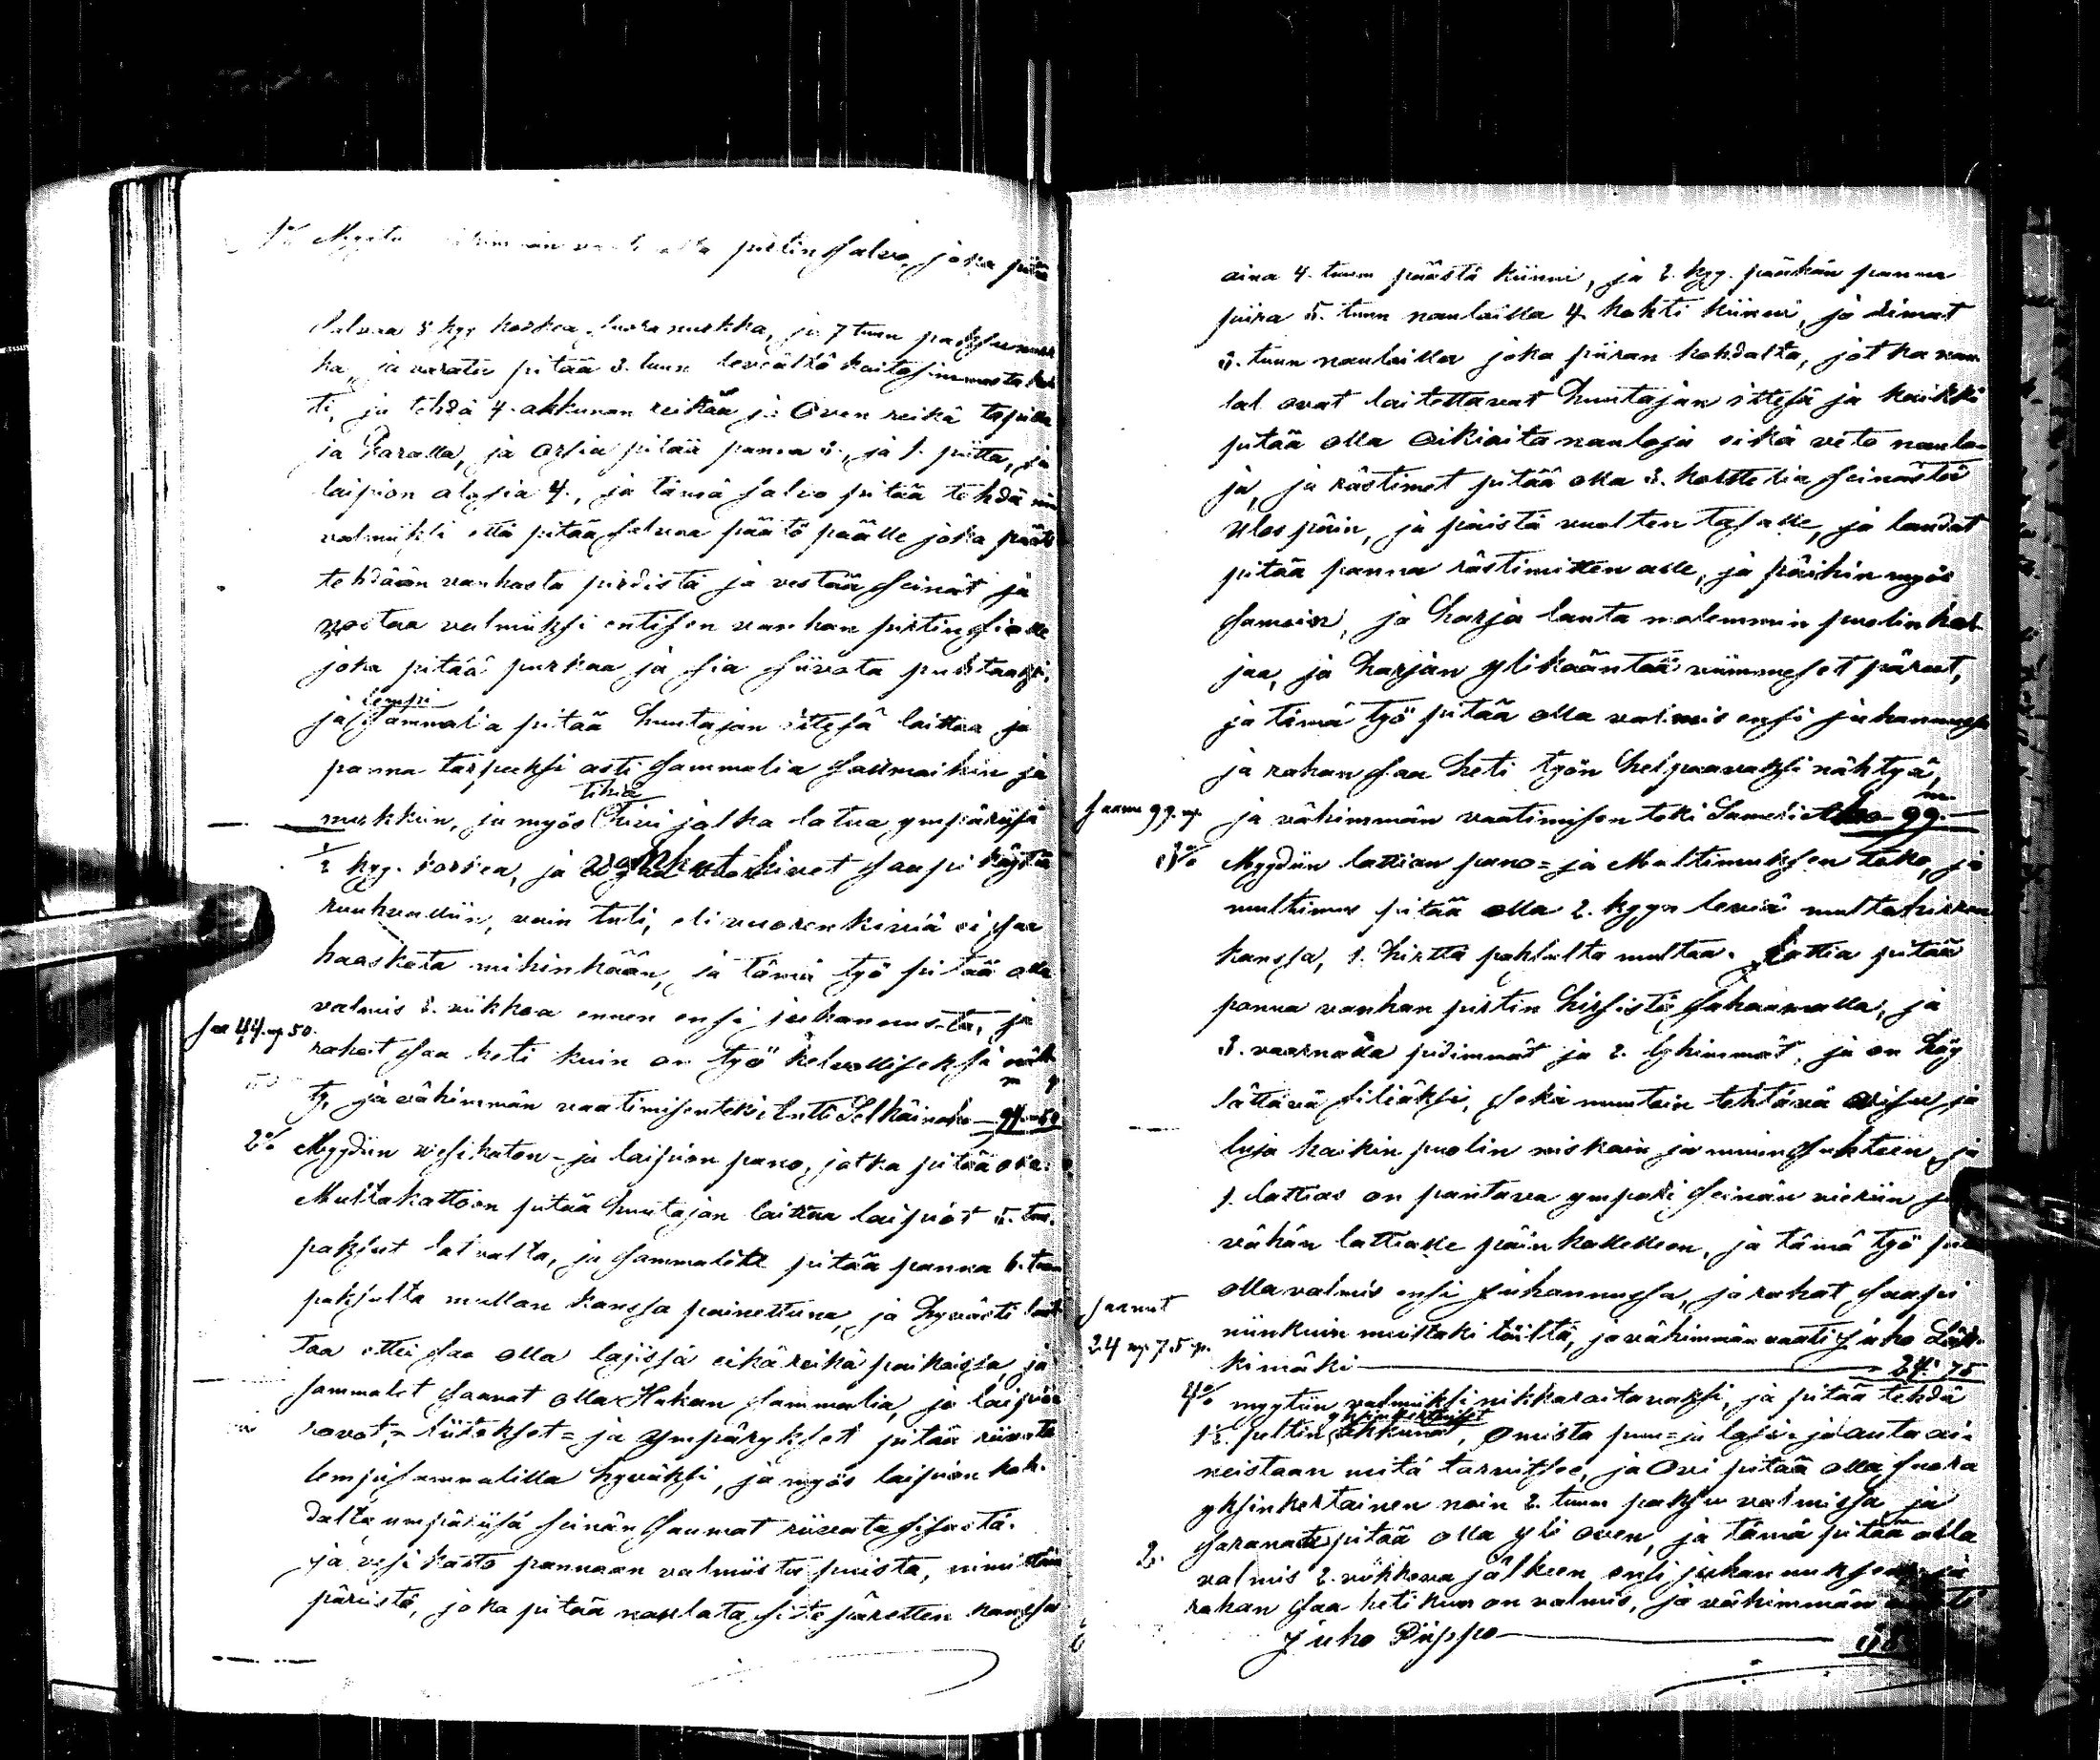 1:o Myytu pirtin salvo, joka pitää
salvaa 5 kyy korkea suora nurkka, ja 7 tuum paksu nurk
ka, ja varata pitää 3. tuum leveältä
ti, ja tehdä 4. akkunan reikää ja Oven reikä
ja Karalla, ja orsia pitää panna 3., ja 1. piitta, ja
laipion alusia 4., ja tämä salvo pitää tehdä niin
valmiiksi että pitää salvaa päätö päälle joka päätö
tehdään vanhasta pirdistä ja vestää seinät ja
nostaa valmiiksi entisen vanhan pirtin sialle
joka pitää purkaa ja sia siivota puhtaaksi,
ja lempi sammalia pitää huutajan ittesä laittaa ja
panna tarpeeksi asti sammalia saumaihin ja
nurkkiin, ja myös tihiä kivi jalka latua ympäriisä
1/2 kyy. korkea, ja vanhat kivet saapi käyttä
ruuhvalliin, vain tuli, eli vuoren kiviä ei saa
haaskata mihinkään, ja tämä työ pitää olla
valmis 2. viikkoa ennen ensi juhannusta, ja
saa 44. mp 50.
rahat saa heti kuin on työ kelvolliseksi näh
ty, ja vähimmän vaatimisen teki Antti Selkäinaho — 44 50
2:o Myydiin vesikaton- ja laipion pano, jotka pitää olla.
Multakattoon pitää huutajan laittaa laipiot 5. tuu.
paksut latvalta, ja sammaleita pitää panna 6. tuum
paksulta mullan kanssa painettuna, ja hyvästi lait
taa ettei saa olla lajissa eikä reikä paikaissa, ja
sammalet saavat olla Hakan sammalia, ja laipion
ravot, = liitokset = ja ympärykset pitää riivata
lempisammalilla hyväksi, ja myös laipion koh.
dalta ympäriisä seinän saumat riivata sisästä.
ja vesi katto pannaan valmiista puista, nimittäin
päreistä, joka pitää naulata siite päretten kanssa
aina 4. tuum päästä kiinni, ja 2. kyy. päähän panna
piira 5. tuum nauloilla 4. kohti kiinni, ja rimat
3. tuum nauloilla joka piiran kohdalta, jotka nau
lat ovat laitettavat huutajan ittesä ja kaikki
pitää olla Oikiaita nauloja eikä veto naulo-
ja, ja rästimet pitää olla 3. korttelia seinästä
ulos päin, ja päistä vualten tasalle, ja laudat
pitää panna rästimitten alle, ja päihin myös
samoin, ja harja lauta molemmin puolin har
jaa, ja harjan ylikääntää viimmeset päreet,
ja tämä työ pitää olla valmis ensi juhannuxsa
ja rahan saa heti työn kelpaavaksi nähtyä,
saanu 99. mp. ja vähimmän vaatimisen teki Sameli — 99. —
3:o Myydiin lattian pano = ja Multimuksen teko, ja
multimus pitää olla 2. kyyn leviä multahirren
kanssa, 1. hirttä paksulta multaa. Lattia pitää
panna vanhan pirtin hirsistä sahaamalla, ja
3. vaarnalla pidimmät ja 2. lyhimmät, ja on höy
lättävä siliäksi, sekä muutoin tehtävä ja
luja kaikin puolin niskain ja muin suhteen, ja
1. lattias on pantava ympäri seinän vieriin
vähän lattialle päin kallelleen, ja tämä työ pitää
olla valmis ensi juhannuxsa, ja rahat saapi
saanut
24 mp. 75 p.
niinkuin muiltaki töiltä, ja vähimmän vaati Juho
kimäki — 24: 75
4:o myytiin valmiiksi nikkaroitavaksi, ja pitää tehdä
pirttin yksinkertaiset akkunat, omista puu = ja lasi = ja auta ai-
neistaan mitä tarvittee, ja Ovi pitää olla suora
yksinkertainen noin 2. tuum paksu valmissa ja
saranat pitää olla yli oven, ja tämän pitää olla
2. valmis 2. viikkoa jälkeen ensi juhannuksen ja
rahan saa heti kun on valmis, ja vähimmän vaati
Juho Piippo